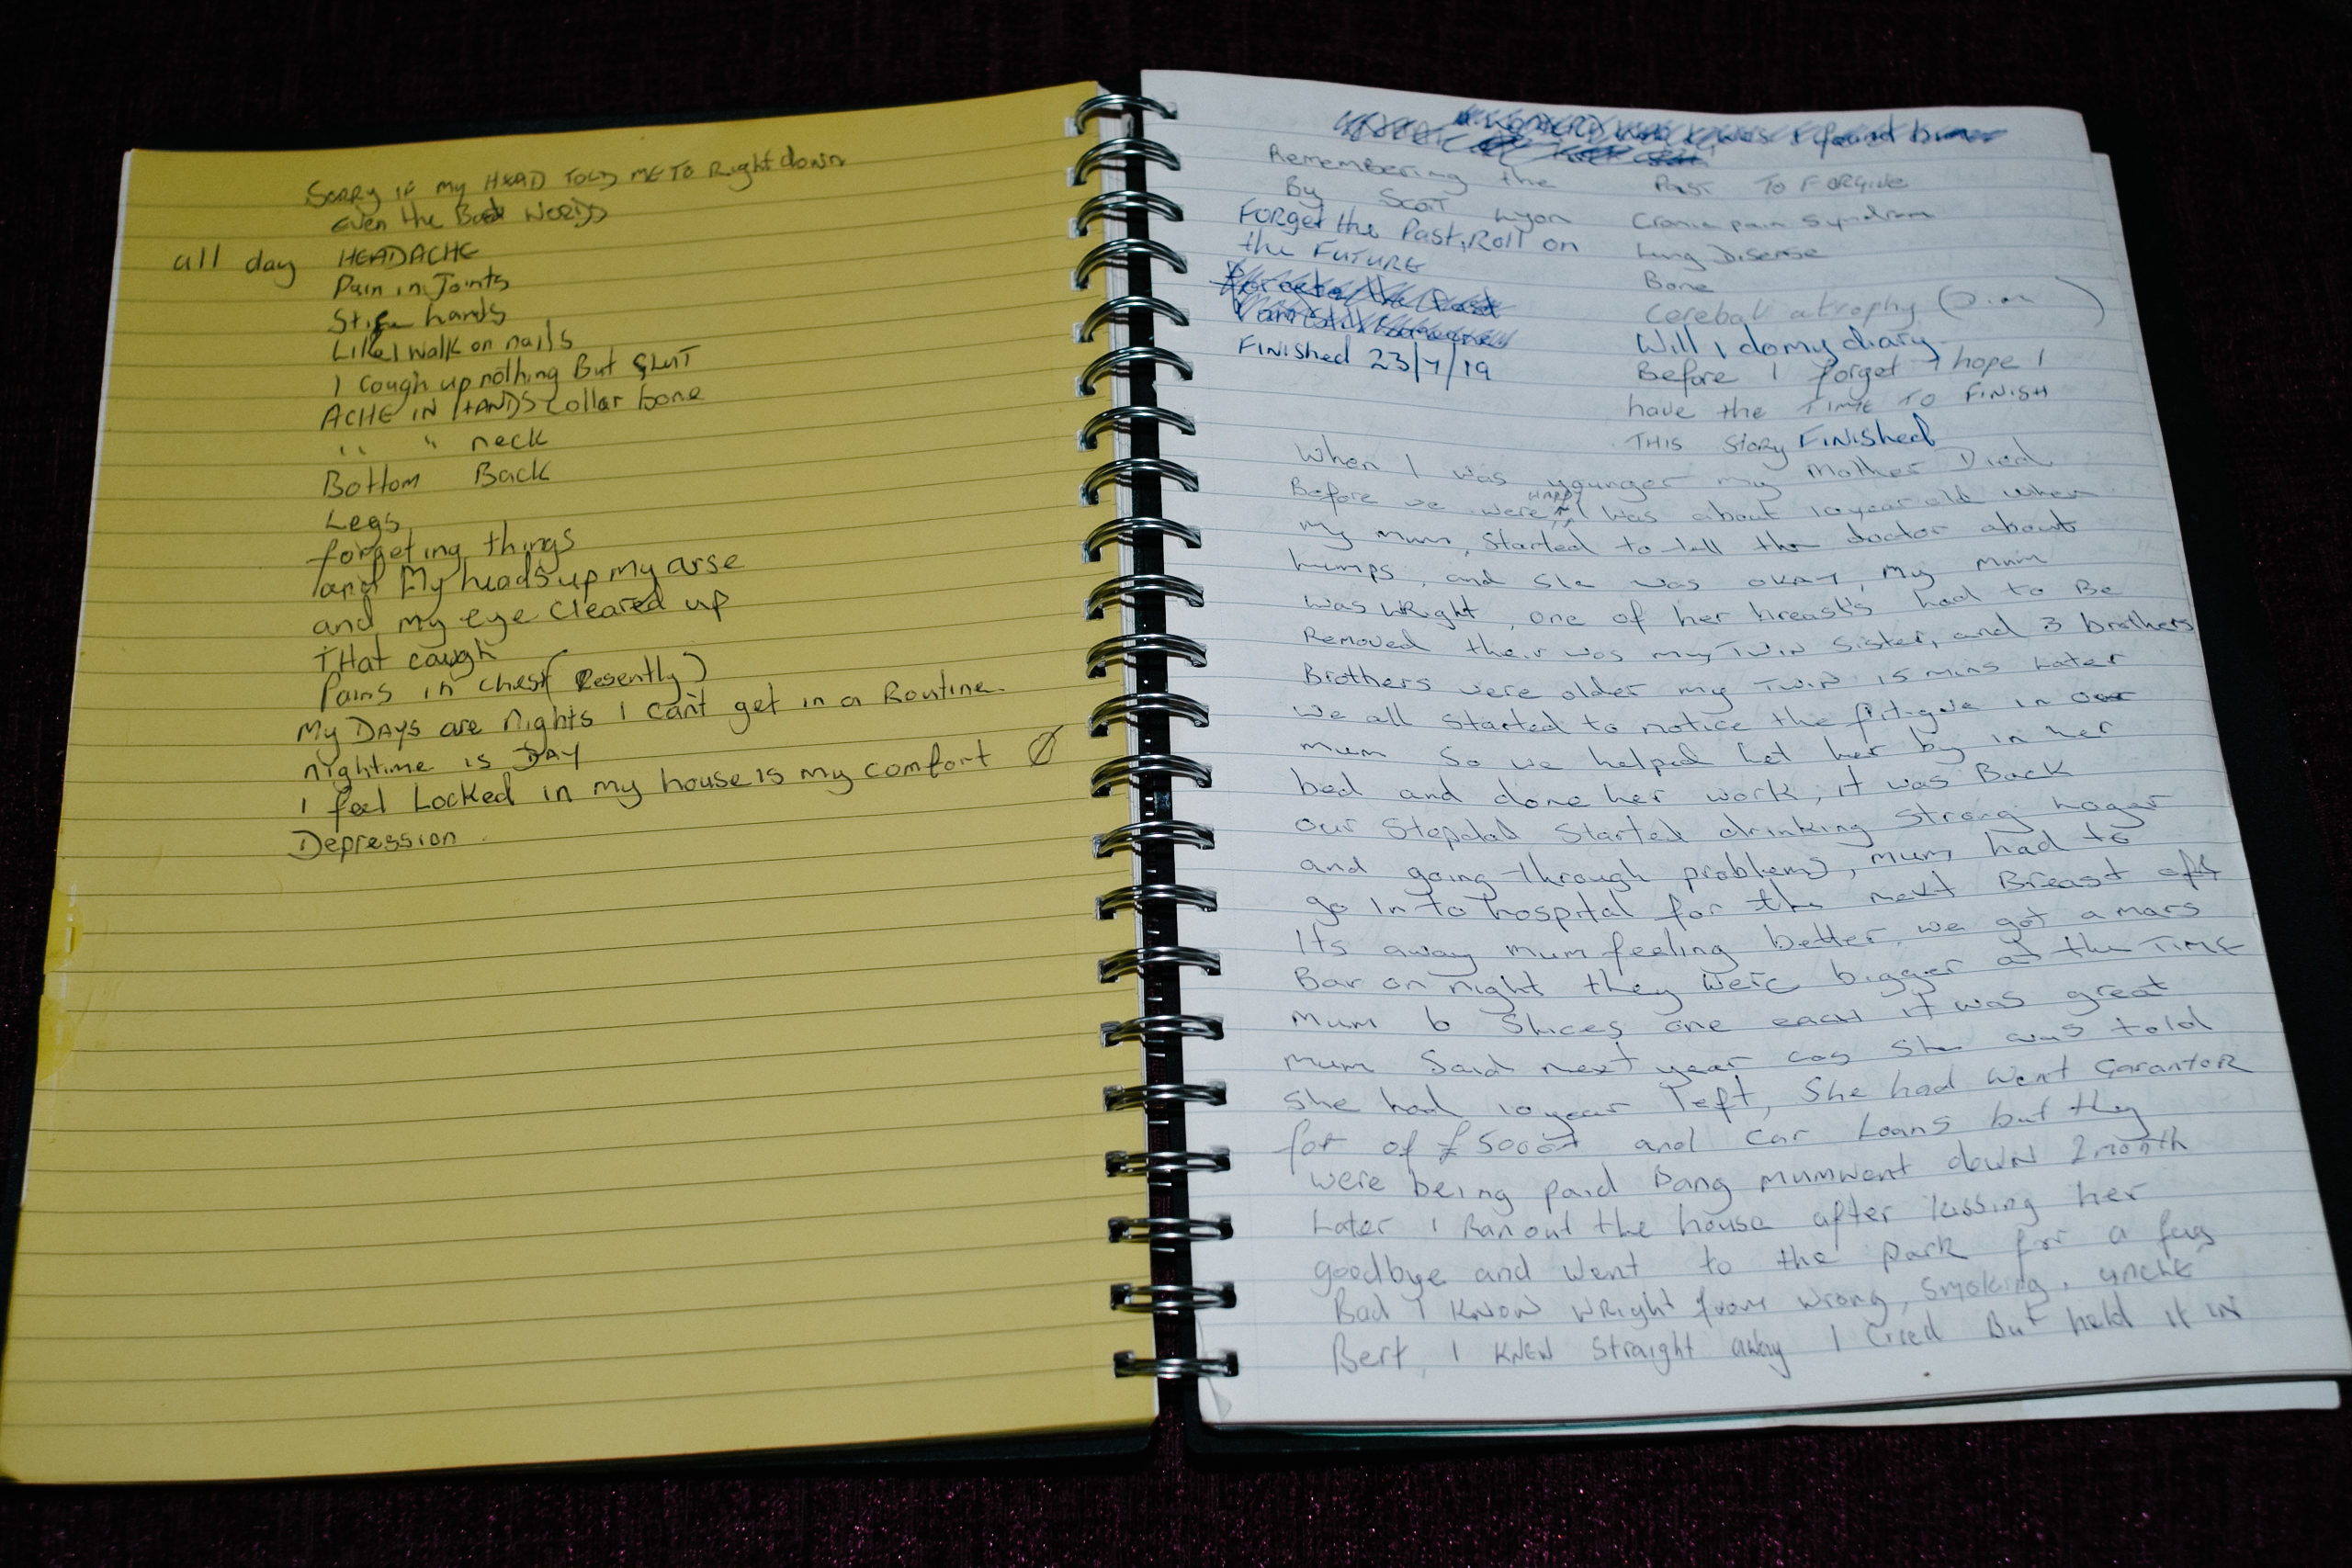 Sorry if my HEAD TOLD ME TO Right down
even the Bad Words
all day HEADACHE
Pain in Joints
hands
Like I walk on nails
I Cough up nothing But
ACHE IN HANDS collar bone
" " neck
Bottom Back
Legs
forgeting things
and My heads up my arse
and my eye cleared up
THat cough
Pains in chest (Resently)
My DAYS are Nights I can't get in a Routine.
Nightime is DAY
I feel Locked in my house is my comfort
Depression
Remembering the Past TO FORGIVE
By Scot Lyon
Cronic pain Syndrom
FORget the Past, Roll on
the FUTURE
Lung Disease
Bone
Cerebal atrophy
FINISHED 23/7/19
Will I do my diary
Before I forget I hope I
have the TIME TO FINISH
THIS Story FINISHED
When I was younger my Mother Died
Before we were HAPPY I was about 10 year old when
My mum, started to tell the doctor about
Lumps, and she was okay, My mum
was WRight, one of her breasts had to Be
Removed their was my TWIN Sister, and 3 brothers
Brothers were older my TWIN 15 mins Later
We all started to notice the in our
mum So we helped Let her by in her
bed and done her work, it was Back
our Stepdad Started drinking Strong
and going through problems, mum had to
go In to hospital for the next Breast off
Its away mum feeling better, we got a mars
Bar on night they were bigger at the TIME
Mum 6 Slices one each it was great
mum Said next year cos she was told
She had 10 year left, She had Went Garantor
for of £5000 and car Loans but they
were being paid Bang mum went down 2 month
Later I Ran out the house after kissing her
goodbye and went to the park for a fag
Bad I KNOW WRight from wrong, smoking, uncle
Bert, I KNEW Straight away I cried But held it IN